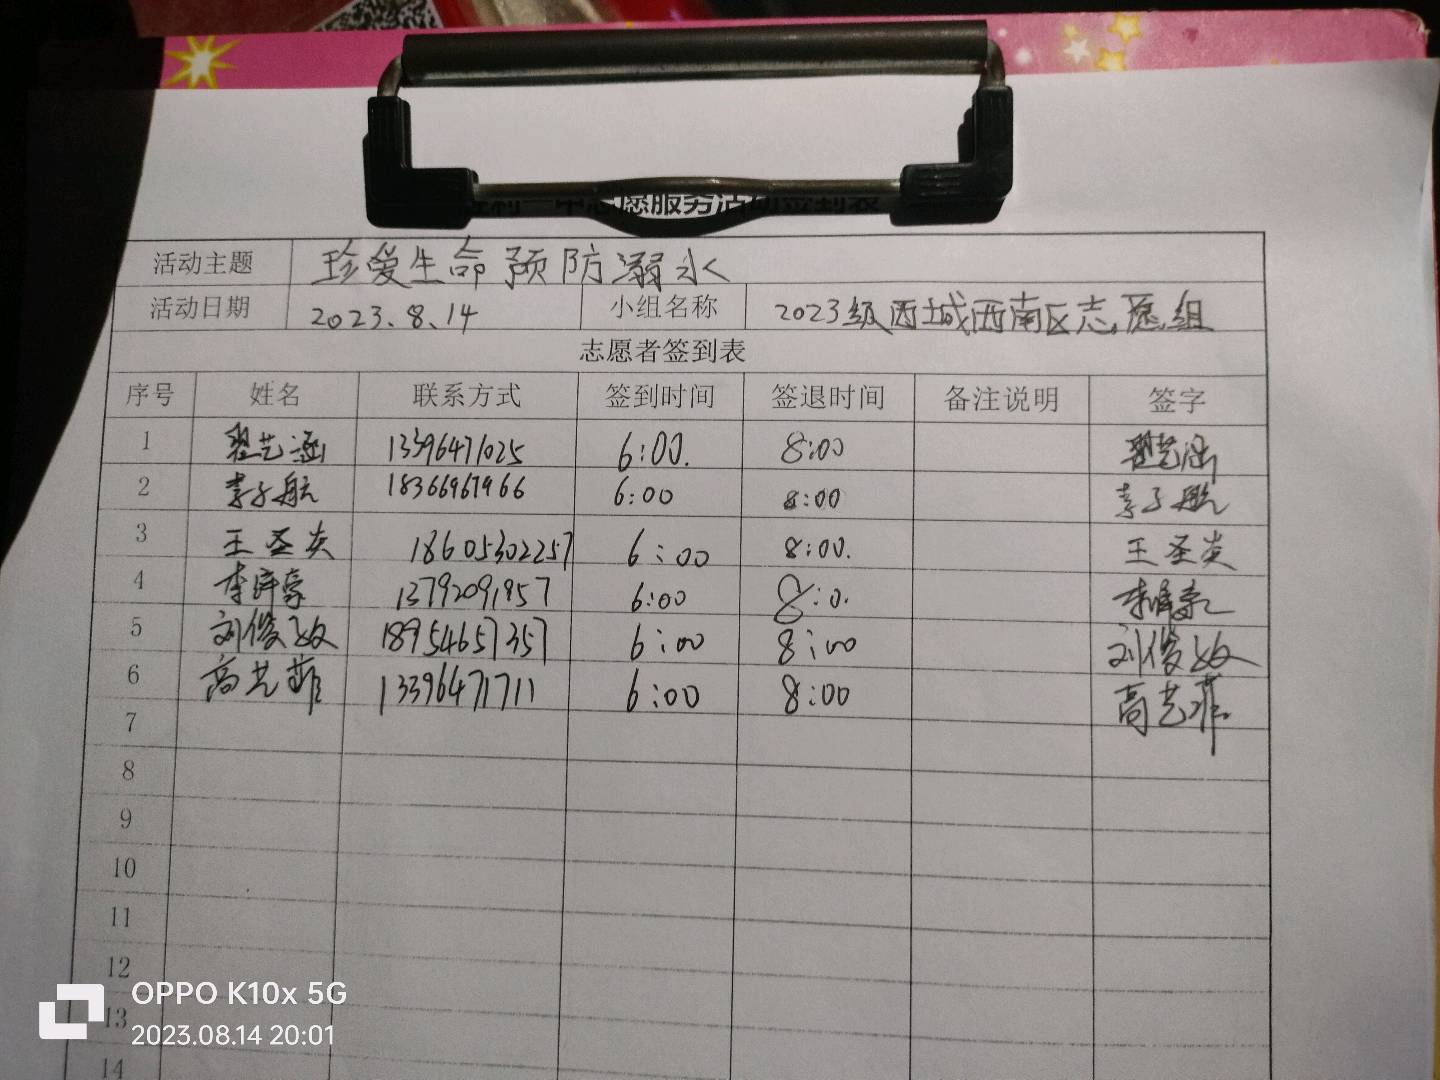 愿服务活动签到表
活动主题 珍爱生命预防溺水
活动日期 2023.8.14 小组名称 2023级西城西南区志愿组
志愿者签到表
序号 姓名 联系方式 签到时间 签退时间 备注说明 签字
1 翟艺涵 13396471025 6:00. 8:00 翟艺涵
2 李子航 18366967966 6:00 8:00 李子航
3 王圣炎 18605302257 6:00 8:00. 王圣炎
4 13792091957 6:00 8:0.
5 刘俊 18954657357 6:00 8:00 刘俊
6 高艺菲 13396471711 6:00 8:00 高艺菲
7
8
9
10
11
12
13
14
OPPO K10x 5G
2023.08.14 20:01